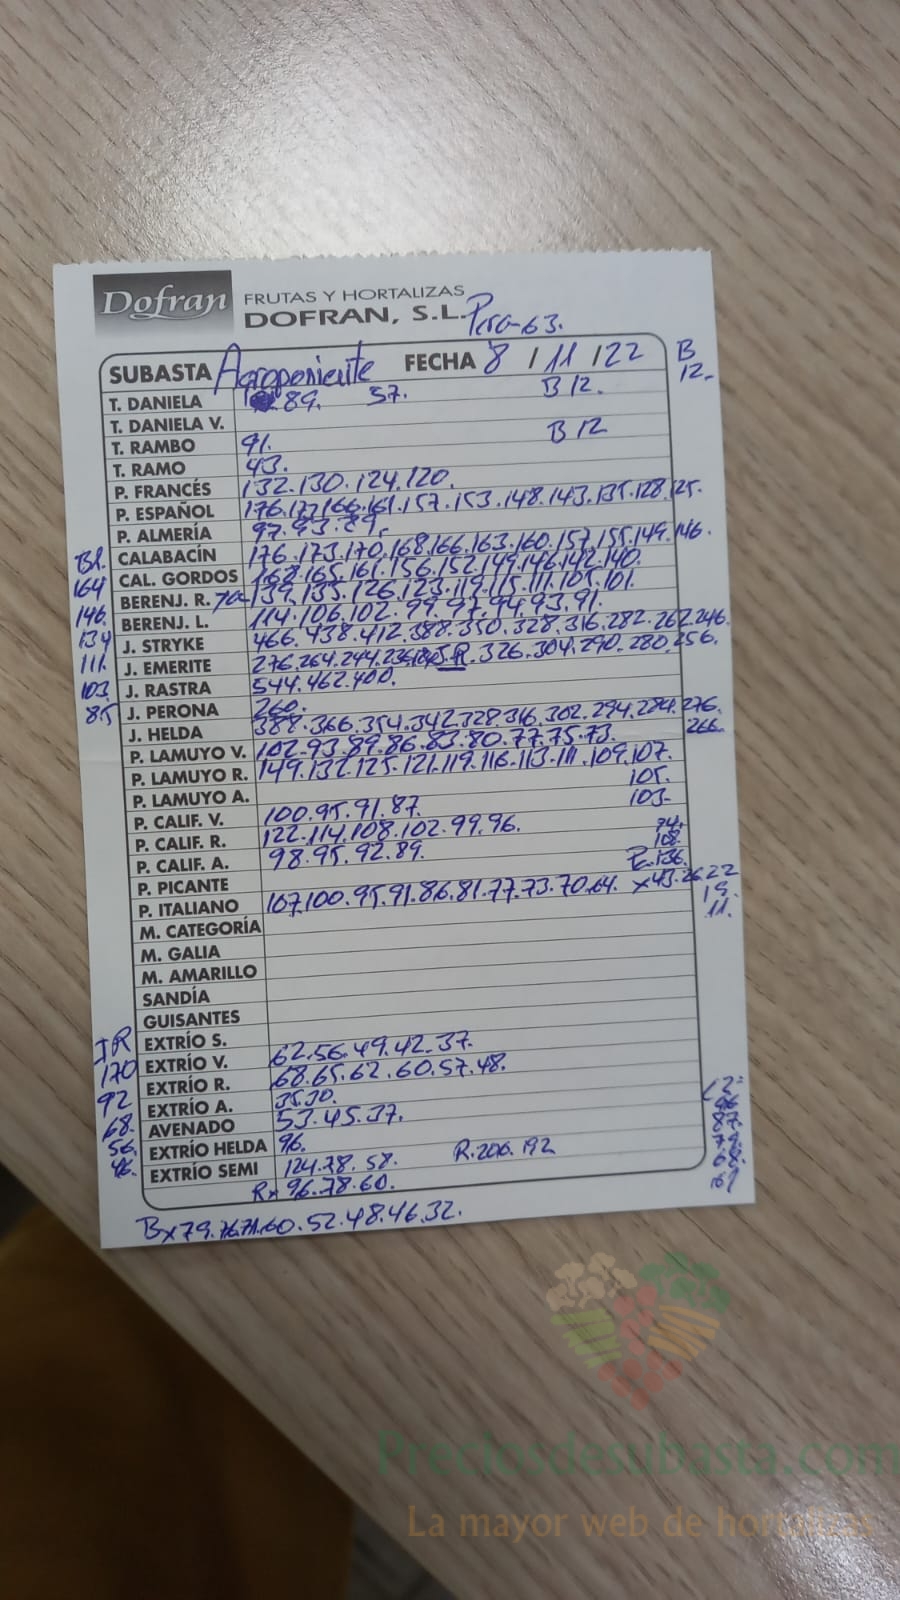 Dofran FRUTAS Y HORTALIZAS
DOFRAN, S.L. Pera-63.
SUBASTA Agroponiente FECHA 8 / 11 / 22 B 12.
T. DANIELA 89. 57. B 12.
T. DANIELA V.
T. RAMBO 91. B 12
T. RAMO 43.
P. FRANCÉS 132.130.124.120.
P. ESPAÑOL 176.177.166.161.157.153.148.143.135.128.125.
P. ALMERÍA 97.93.89.
Bl. CALABACÍN 176.173.170.168.166.163.160.157.155.149.146.
164 CAL. GORDOS 168.165.161.156.152.149.146.142.140.
146. BERENJ. R. 139.135.126.123.119.115.111.105.101.
134 BERENJ. L. 114.106.102.99.97.94.93.91.
111. J. STRYKE 466.438.412.388.350.328.316.282.262.246.
103. J. EMERITE 276.264.244. S.R. 326.304.290.280.256.
85 J. RASTRA 544.462.400.
J. PERONA 260.
J. HELDA 388.366.354.342.328.316.302.294.284.276.
266.
P. LAMUYO V. 102.93.89.86.83.80.77.75.73.
P. LAMUYO R. 149.132.125.121.119.116.113.111.109.107.
105.
P. LAMUYO A. 103-
P. CALIF. V. 100.95.91.87.
P. CALIF. R. 122.114.108.102.99.96.
P. CALIF. A. 98.95.92.89.
P. PICANTE
P. ITALIANO 107.100.95.91.86.81.77.73.70.64. x43.26.22
19.
11.
M. CATEGORÍA
M. GALIA
M. AMARILLO
SANDÍA
GUISANTES
EXTRÍO S.
170 EXTRÍO V. 62.56.49.42.37.
92 EXTRÍO R. 68.65.62.60.57.48.
68. EXTRÍO A. 35.30.
56. AVENADO 53.45.37.
46. EXTRÍO HELDA 96.
EXTRÍO SEMI 124.78.58. R.206.192
Rx 96.78.60.
Bx79.76.71.60.52.48.46.32.
Preciosdesubasta.com
La mayor web de hortalizas